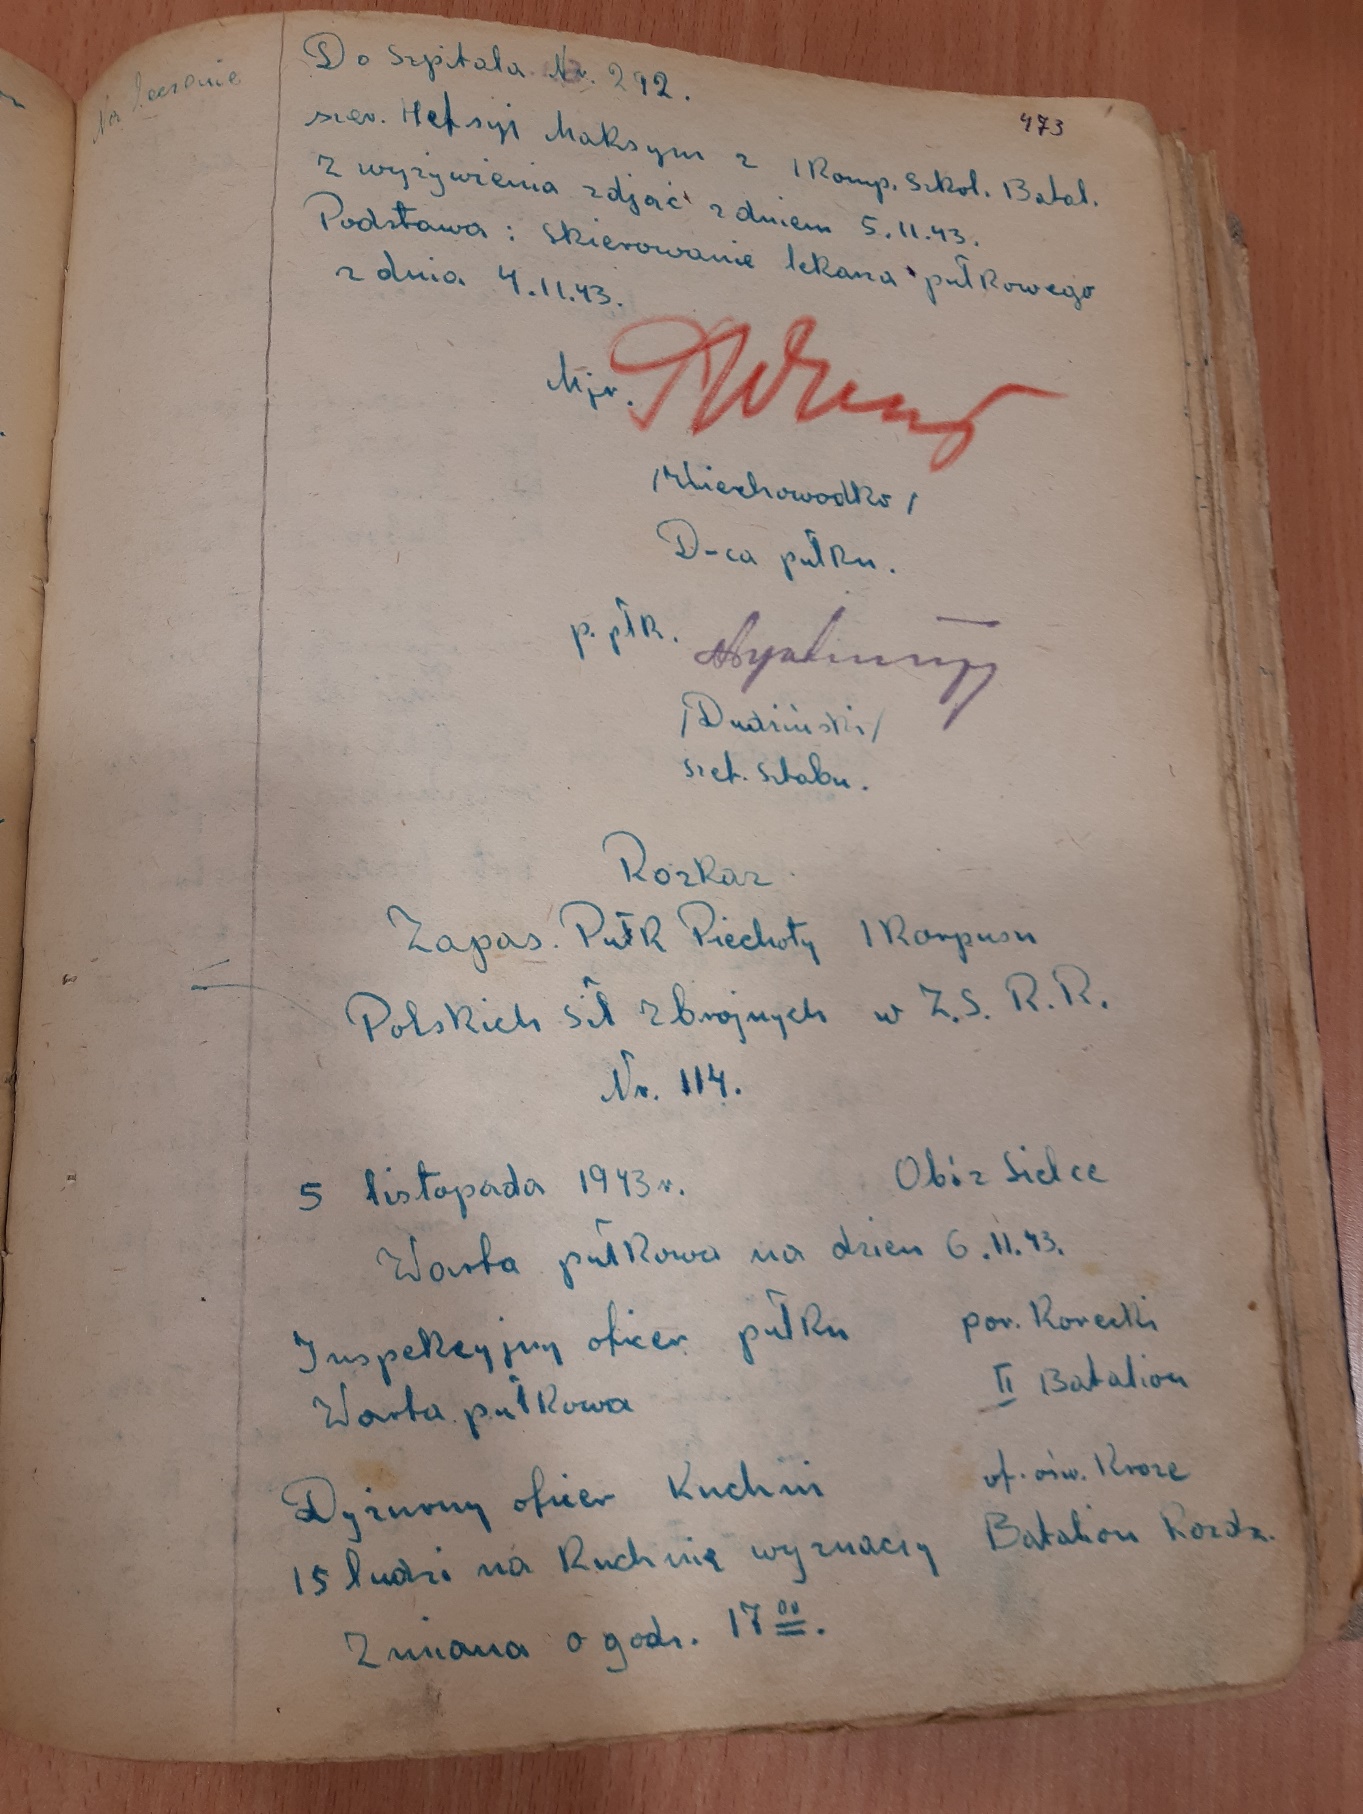 473
Na leczenie
Do Szpitala Nr. 292.
szer. Hefsyj Maksym z I Komp. Szkol. Batal.
Z wyżywienia zdjąć z dniem 5.11.43.
Podstawa: Skierowanie lekarza pułkowego
z dnia 4.11.43.
Mjr.
/Wierchowodko/
D-ca pułku.
p.płk.
/Dudziński/
szef. Sztabu.
Rozkaz
Zapas. Pułk Piechoty I Korpusu
Polskich Sił Zbrojnych w Z.S.R.R.
Nr. 114.
5 listopada 1943r. Obóz Sielce
Warta pułkowa na dzień 6.11.43.
Inspekcyjny oficer pułku por. Korecki
Warta pułkowa II Batalion
Dyżurny oficer Kuchni of. ośw. Kroze
15 ludzi na Kuchnię wyznaczy Batalion Rozdz.
Zmiana o godz. 17 00.